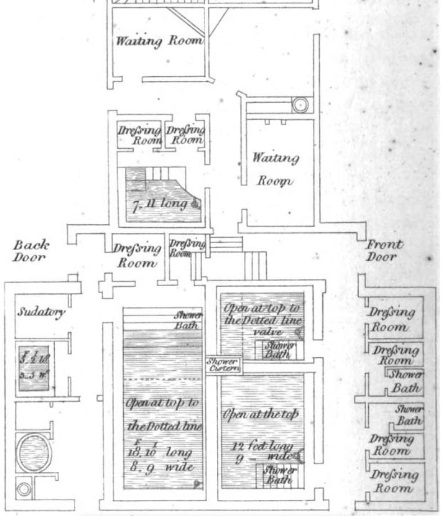 Waiting Room
Dreſsing
Room
Dreſsing
Room
Waiting
Room
7. 11 long
Back
Door
Dreſsing
Room
Dreſsing
Room
Front
Door
Sudatory
Shower
Bath
Open at top to
the Dotted line
valve
Shower
Bath
Shower
Cistern
Open at top to
the Dotted line
F I
18, 10 long
8. 9 wide
Open at the top
12 feet long
9 wide
Shower
Bath
Dreſsing
Room
Dreſsing
Room
Shower
Bath
Shower
Bath
Dreſsing
Room
Dreſsing
Room